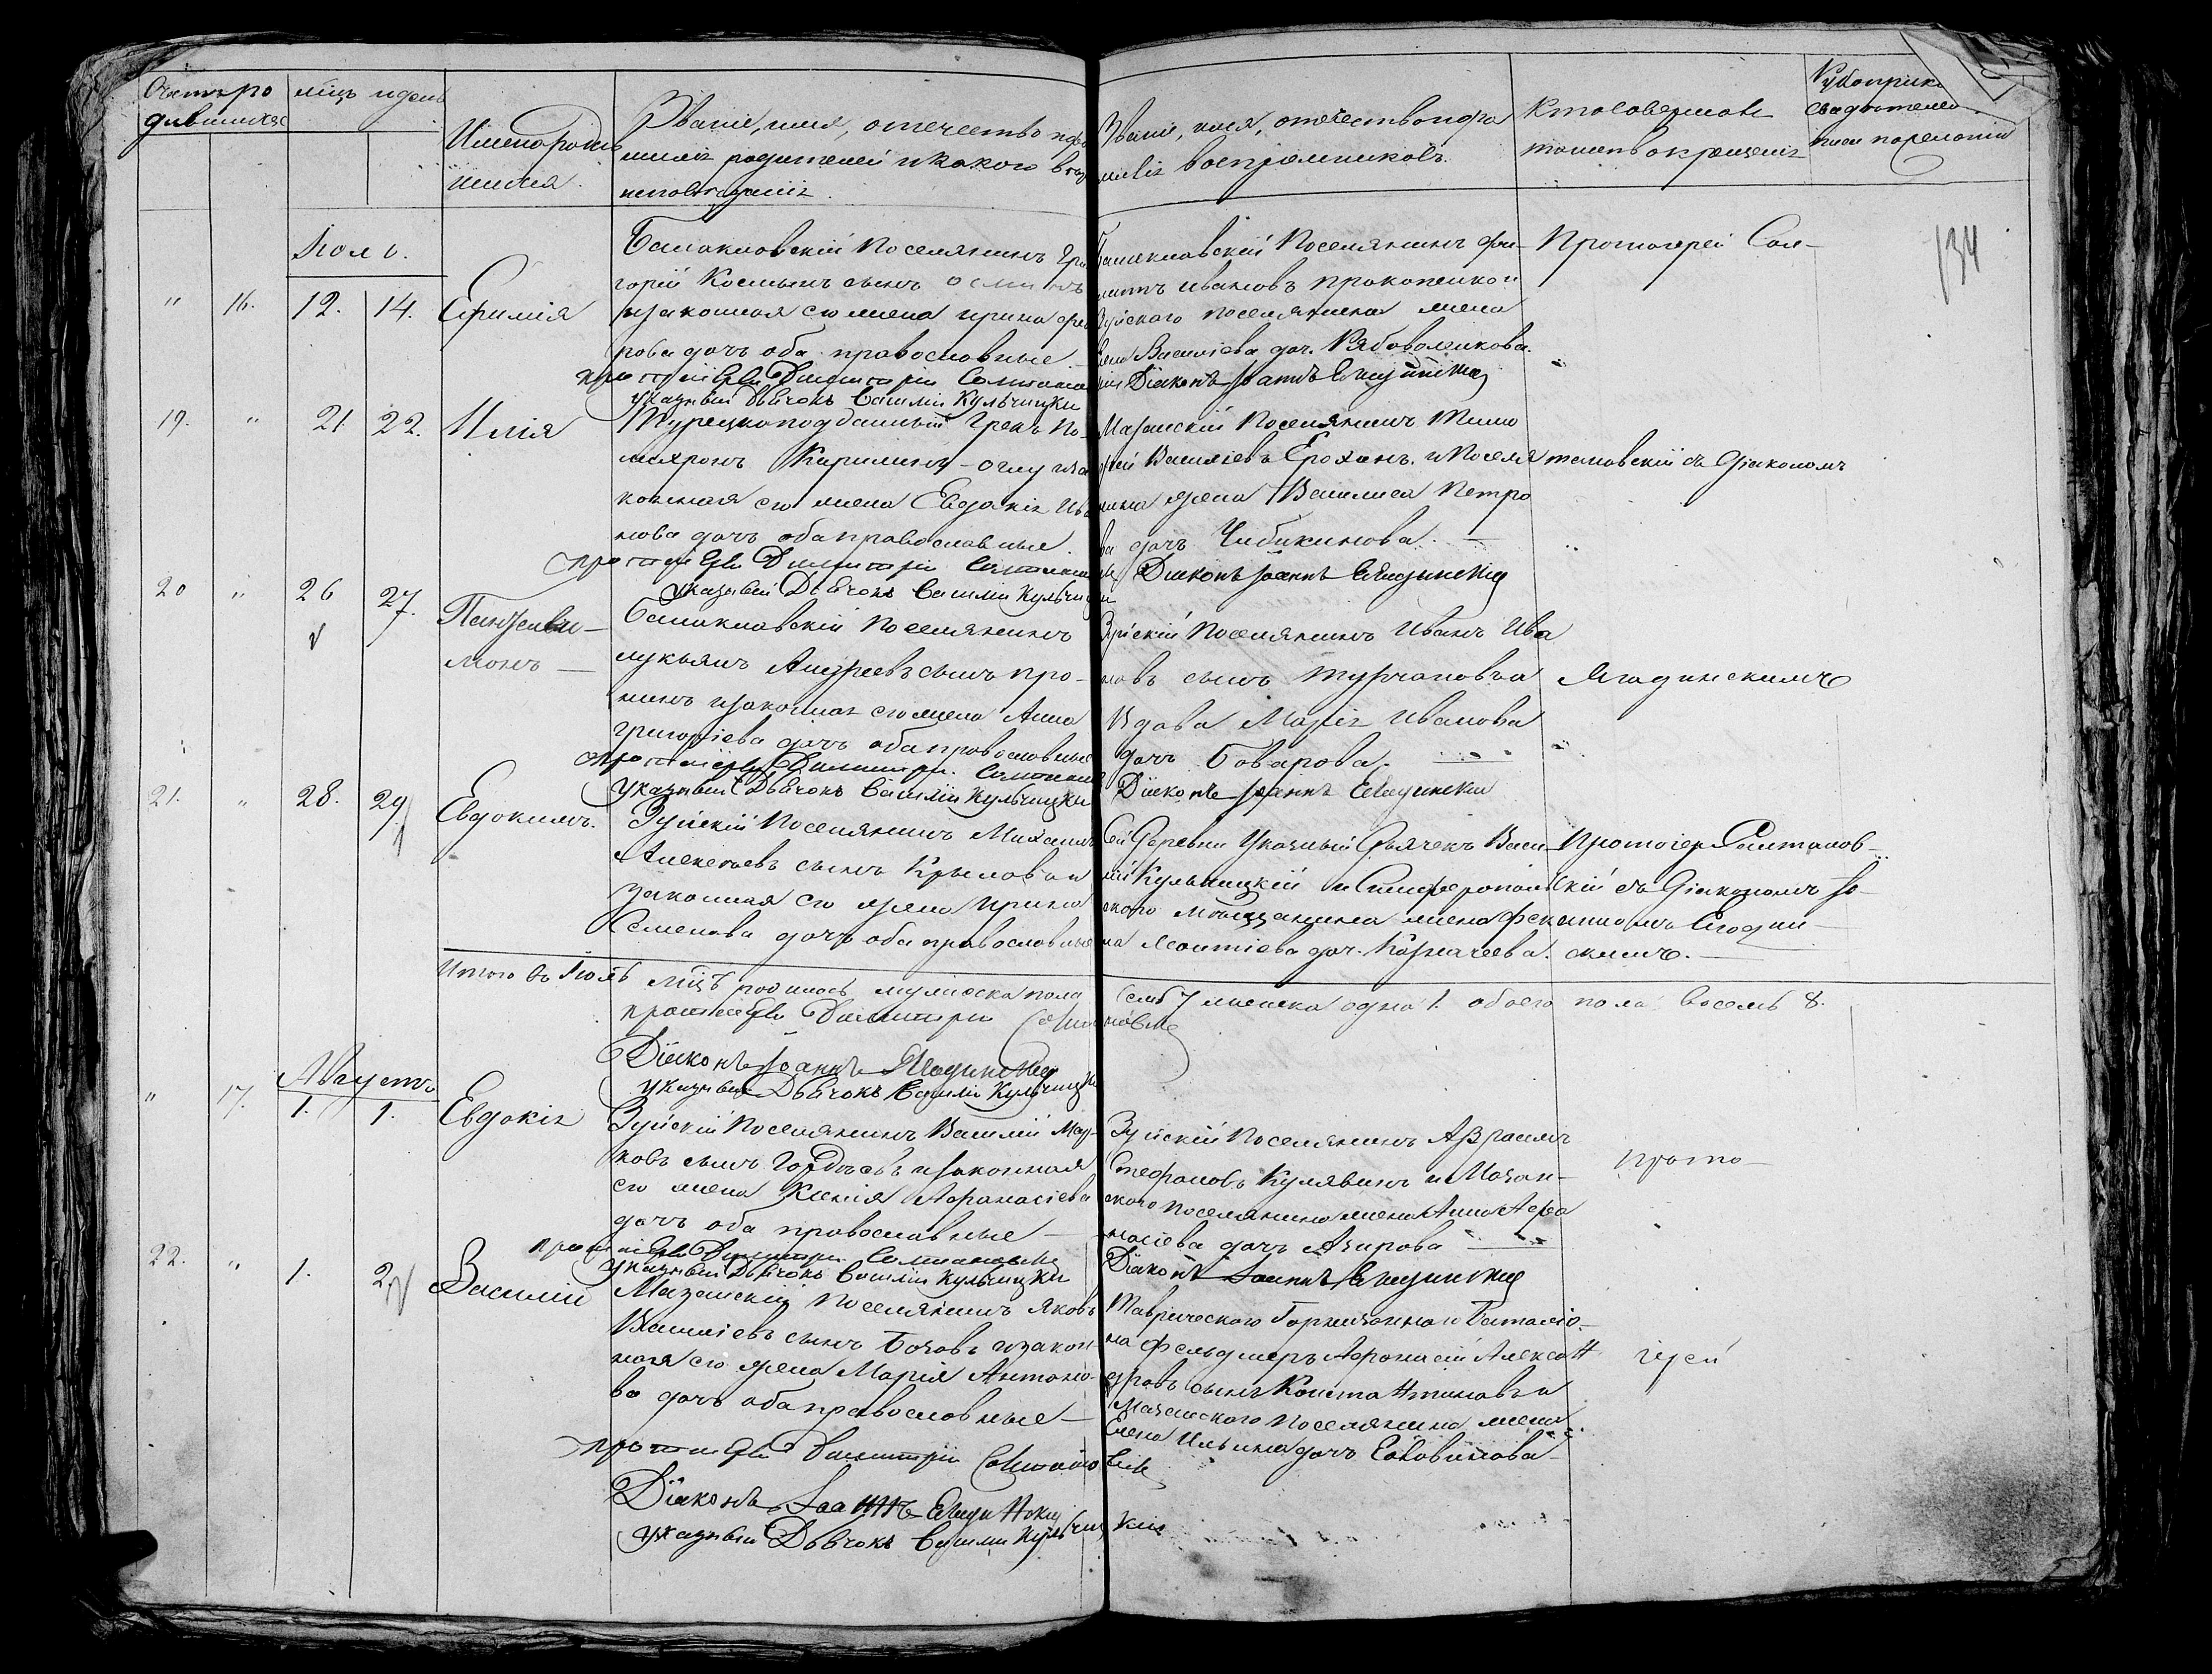 Счетъ ро
дившихся
мцъ и день
Имена родив
шихся.
Званіе, имя, отечество и фа
милія родителей и какого вѣро
исповѣданія.
Званіе, имя, отечество и фа
милія воспріемниковъ.
Кто совершалъ
таинство крещенія
Рукоприк
свидетелей
записи по желанію
134
Іюль.
" 16. 12. 14. Ефимія
Башклавскій Поселянинъ Гри
горій Косьминъ сынъ
и законная его жена Ирина
рова дочь оба православные
Протоіерей Димитрій
указный Дьячокъ Василій Кульчицкій
Башклавскій Поселянинъ Фи-
липъ Ивановъ Прокопенко и
Зуйскаго поселянина жена
Василіева доч. Рябоволенкова.
Діаконъ Іоаннъ Ягодинскій
Протоіерей Сал-
19. " 21. 22. Илія
Турецкоподданный Грекъ По-
Кирилинъ-оглу и за
конная его жена Евдокія Ива
нова дочь оба православные.
Протоіерей Димитрій
указный Дьячокъ Василій Кульчицкій
Мазанскій Поселянинъ Тимо
фей Василіевъ Ерохинъ. и Поселя
нина жена Василиса Петро
ва дочь Чибикинова.
Діаконъ Іоаннъ Ягодинскій
тановскій съ Діакономъ
20 " 26 27. Пантелеи-
монъ
Башклавскій Поселянинъ
Лукьянъ Андреевъ сынъ Про-
нинъ и законная его жена Анна
Григоріева дочь оба православные
Протоіерей Димитрій
указный Дьячокъ Василій Кульчицкій
Зуйскій Поселянинъ Иванъ Ива
новъ сынъ Турчановъ и
Вдова Марія Иванова
дочь Боварова.
Діаконъ Іоаннъ Ягодинскій
Ягодинскимъ
21. " 28. 29. Евдокимъ.
Зуйскій Поселянинъ Михаилъ
Алексѣевъ сынъ Крыловъ и
законная его жена Ирина
Семенова дочь оба православные
Сей Деревни Указный Дьячекъ Васи-
лій Кульчицкій и Симферополь
скаго мѣщанина жена Фек
ла Леонтіева доч. Корначеева.
Протоіер. Салтанов-
скій съ Діакономъ Іо-
анномъ Ягодин-
скимъ.
Итого въ Іюлѣ мцѣ родилось мужеска пола
Семь 7 женска одна 1. обоего пола восемь 8.
Протоіерей Димитрій Салтановскій
Діаконъ Іоаннъ Ягодинскій
указный Дьячокъ Василій Кульчицкій
Августъ
" 17. 1. 1. Евдокія
Зуйскій Поселянинъ Василій Мар-
ковъ сынъ Гордѣевъ и законная
его жена Ксенія Афанасіева
дочь оба православные
Протоіерей Димитрій Салтановскій
указный Дьячокъ Василій Кульчицкій
Зуйскій Поселянинъ Авраамъ
Стефановъ Кулявинъ и Мазан-
скаго поселянина жена Анна Афа
насіева дочь Азарова
Діаконъ Іоаннъ Ягодинскій
Прото-
22. " 1. 2. Василій
Мазанскій Поселянинъ Яковъ
Василіевъ сынъ Боговъ и закон-
ная его жена Марія Антоно-
ва дочь оба православные
Протоіерей Димитрій Салтановскій
Діаконъ Іоаннъ Ягодинскій
указный Дьячокъ Василій Кульчицкій
Таврическаго Гарнизоннаго Баталіо-
на Фельдшеръ Афанасій Александ
ровъ сынъ Константиновъ и
Мазанскаго поселянина жена
Елена Ильина дочь
іерей